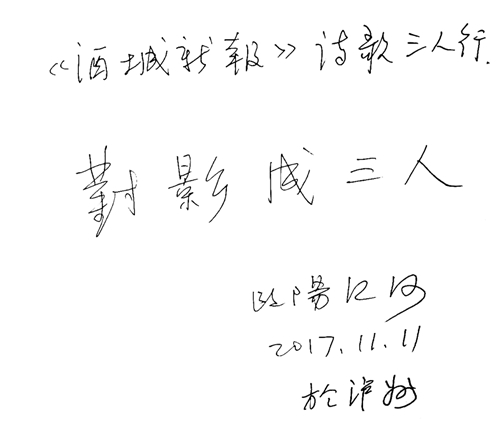 《酒城新报》诗歌三人行.
對影成三人
欧陽江河
2017.11.11
於泸州